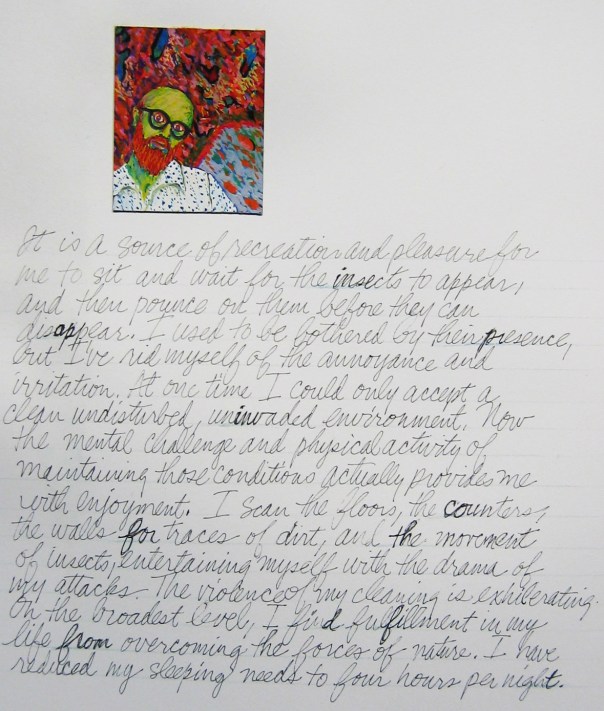 It is a source of recreation and pleasure for
me to sit and wait for the insects to appear,
and then pounce on them before they can
disappear. I used to be bothered by their presence,
but I've rid myself of the annoyance and
irritation. At one time I could only accept a
clean undisturbed, uninvaded environment. Now
the mental challenge and physical activity of
maintaining those conditions actually provides me
with enjoyment. I scan the floors, the counters,
the walls for traces of dirt, and the movement
of insects, entertaining myself with the drama of
my attacks. The violence of my cleaning is exhilerating.
On the broadest level, I find fulfillment in my
life from overcoming the forces of nature. I have
reduced my sleeping needs to four hours per night.